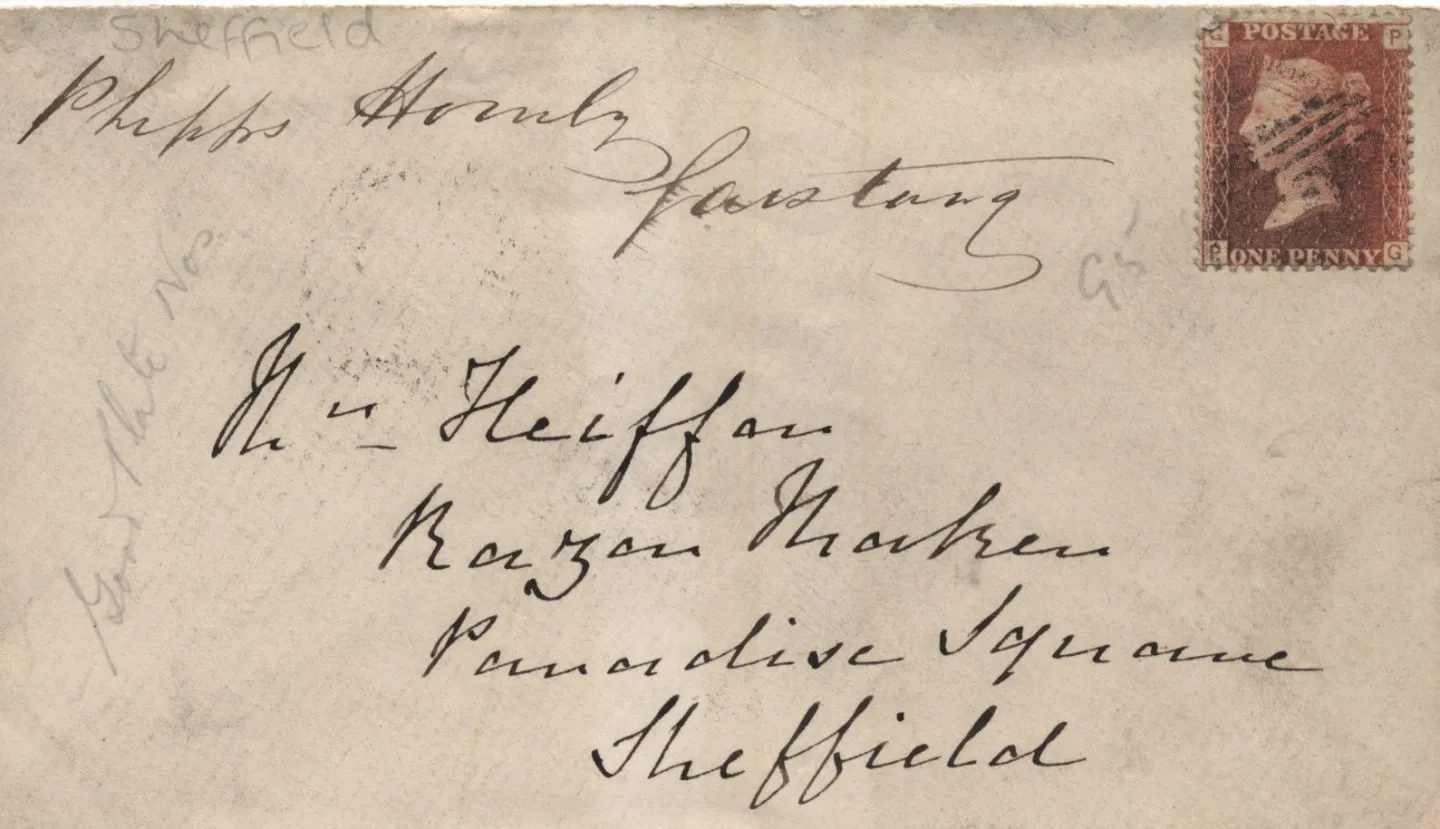 Sheffield
Phipps Hornby
Garstang
POSTAGE
G P
P G
ONE PENNY
Plate Nos
Mr Heiffor
Razor Maker
Paradise Square
Sheffield